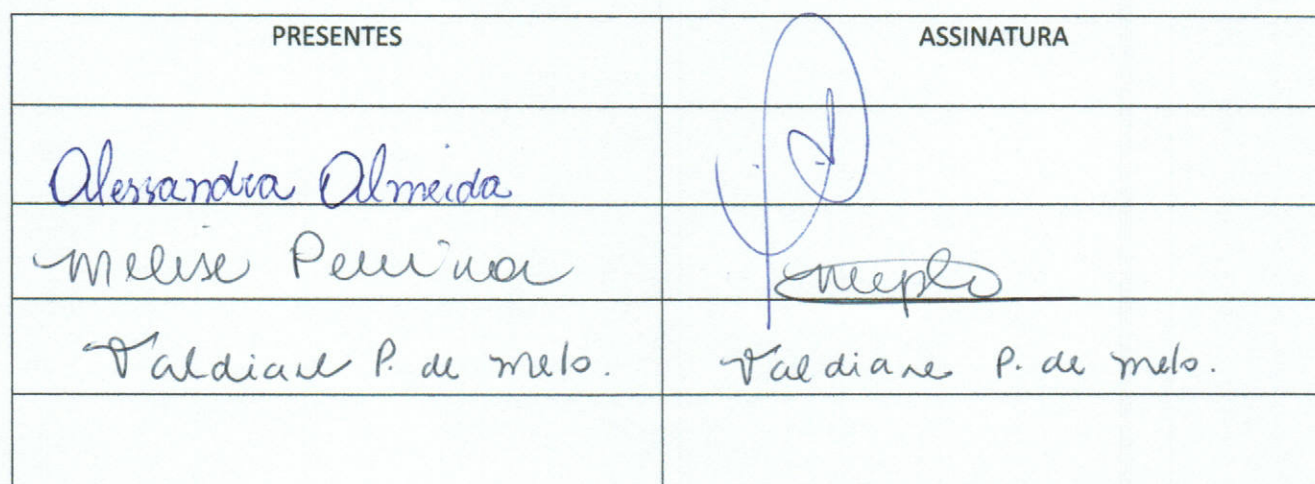 PRESENTES ASSINATURA
Alessandra Almeida
Melise Pereira
Valdiane P. de Melo. Valdiane P. de Melo.